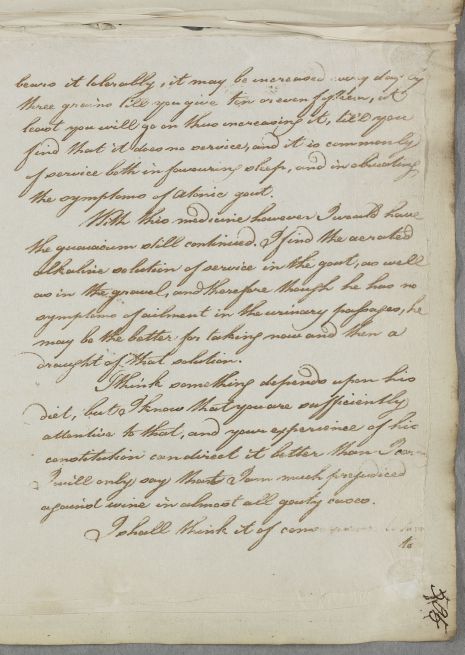 bears it tolerably, it may be increased every day by
three grains till you give ten or even fifteen, at
least you will go on thus increasing it, till you
find that it does no service, and it is commonly
of service both in favouring sleep, and in obviating
the symptoms of Atonic gout.
With this medicine however I would have
the guaiacum still continued. I find the aerated
alkaline solution of service in the gout, as well
as in the gravel, and therefore though he has no
symptoms of ailment in the urinary passages, he
may be the better for taking now and then a
draught of that solution.
I think something depends upon his
diet, but I know that you are sufficiently
attentive to that, and your experience of his
constitution can direct it better than I can
I will only say that I am much prejudiced
against wine in almost all gouty cases.
I shall think it of
to